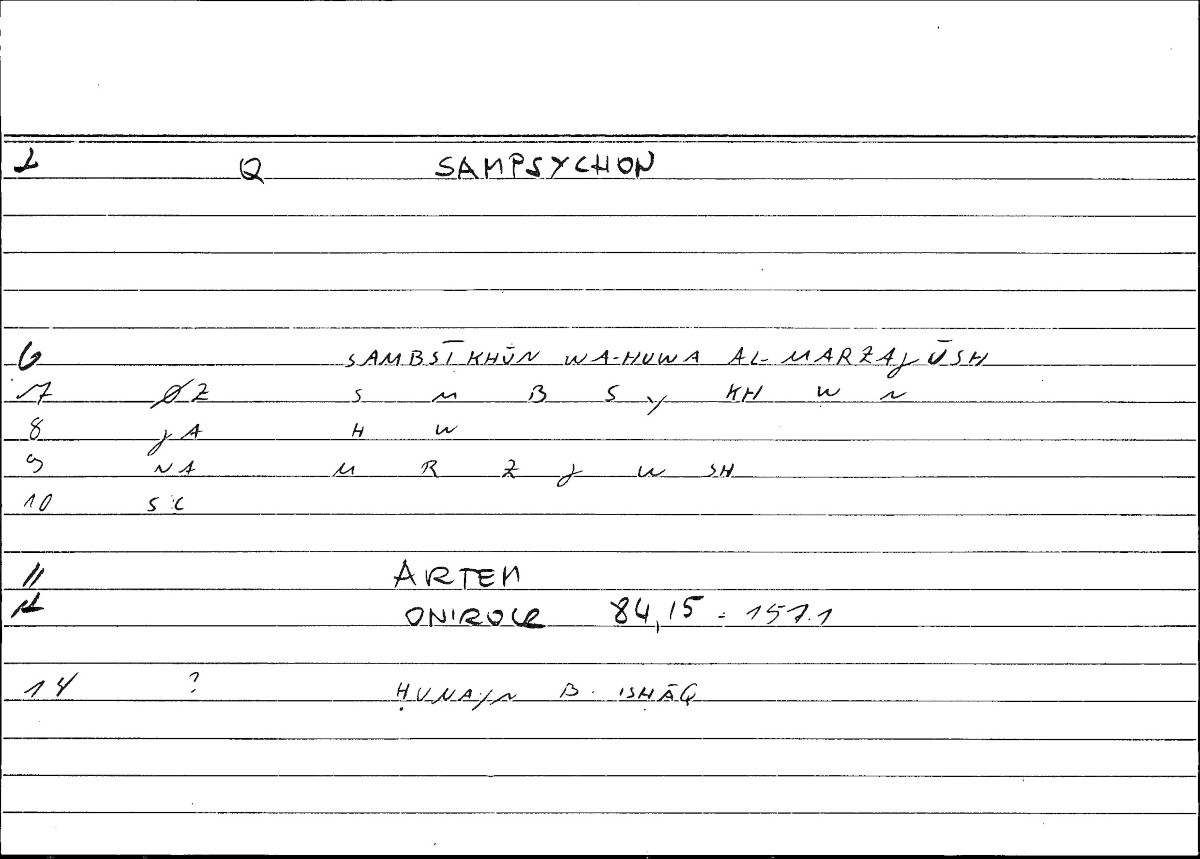 1 Q SAMPSYCHON
6 SAMBSĪKHŪN WA-HUWA AL-MARZAJŪSH
7 ØZ S M B S Y KH W N
8 JA H W
9 NA M R Z J W SH
10 SC
11 ARTEM
12 ONIROCR 84,15 = 157.1
14 ? ḤUNAYN B. ISḤĀQ